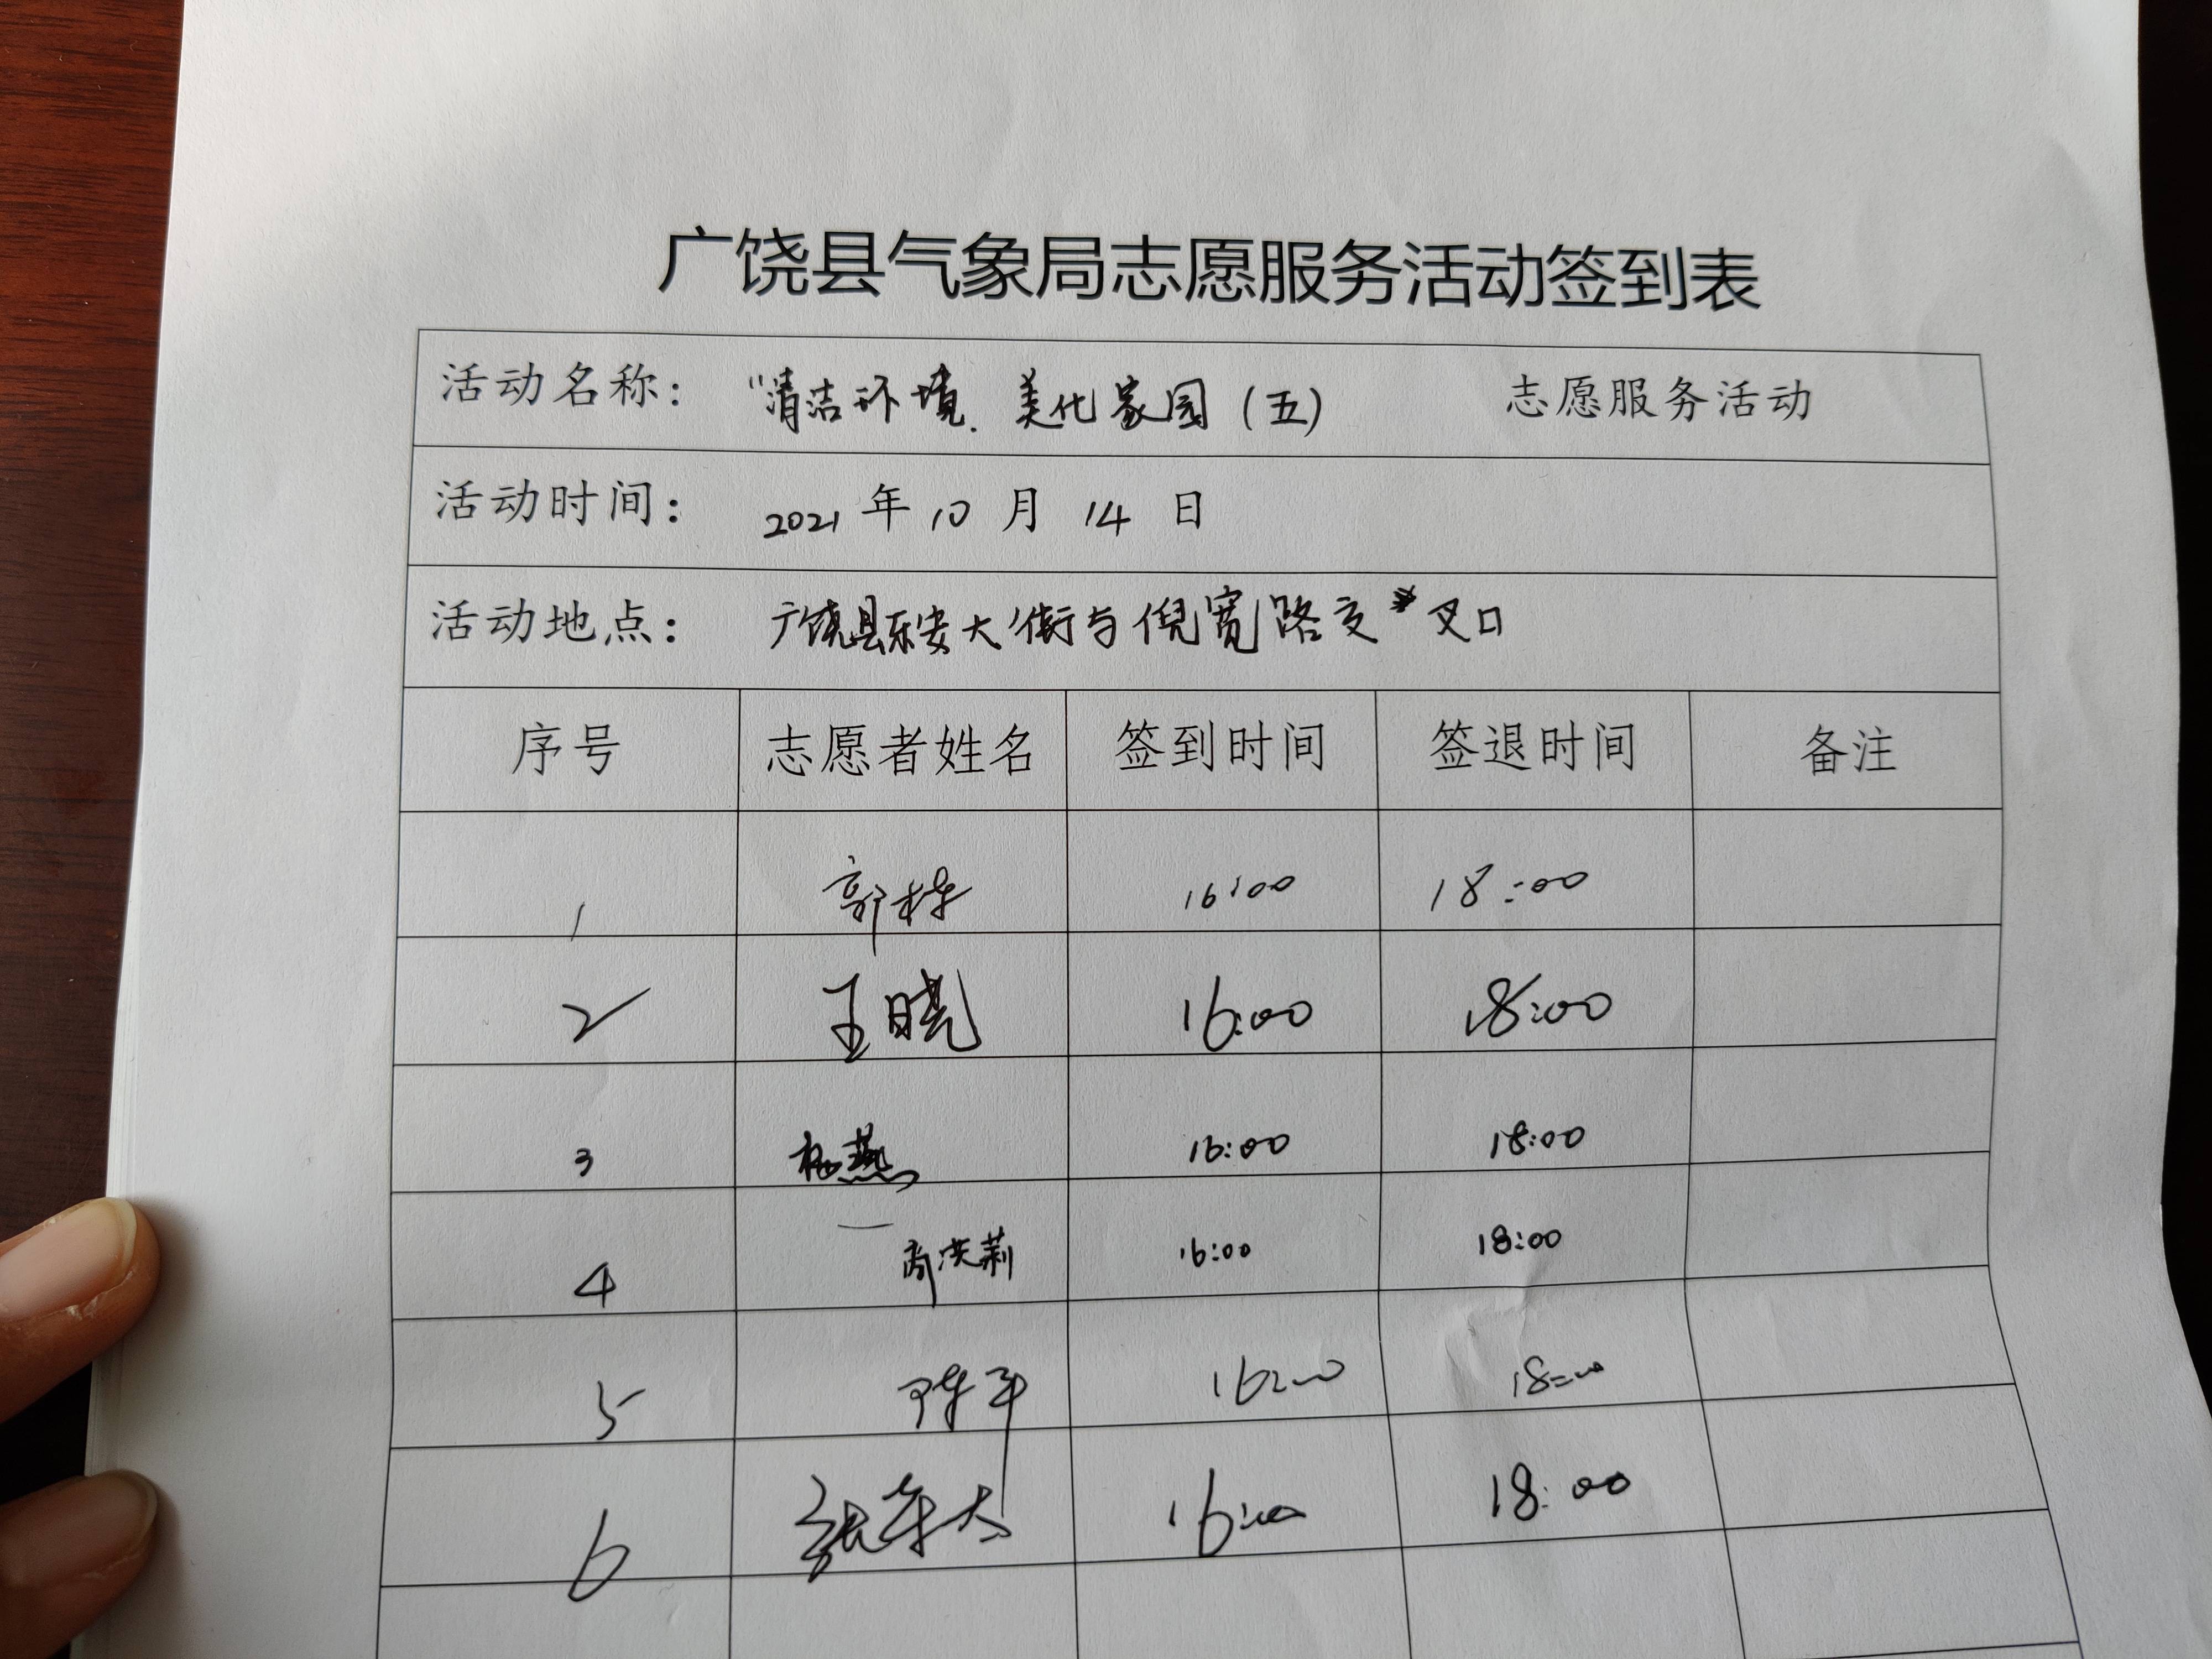 广饶县气象局志愿服务活动签到表
活动名称： “清洁环境．美化家园（五） 志愿服务活动
活动时间： 2021 年 10 月 14 日
活动地点： 广饶县乐安大街与倪宽路交叉口
序号 志愿者姓名 签到时间 签退时间 备注
1 郭栋 16:00 18:00
2 王晓 16:00 18:00
3 杨燕 16:00 18:00
4 商洪莉 16:00 18:00
5 陈平 16:00 18:00
6 16:00 18:00